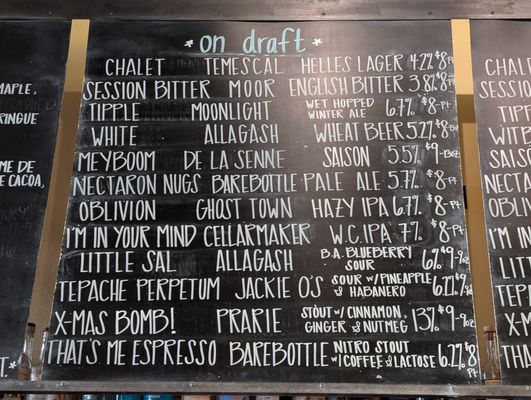 * on draft *
CHALET TEMESCAL HELLES LAGER 4.2% $8 PT
SESSION BITTER MOOR ENGLISH BITTER 3.8% $8 PT
TIPPLE MOONLIGHT WET HOPPED WINTER ALE 6.7% $8 PT
WHITE ALLAGASH WHEAT BEER 5.2% $8
MEYBOOM DE LA SENNE SAISON 5.5% $9 13oz
NECTARON NUGS BAREBOTTLE PALE ALE 5.7% $8 PT
OBLIVION GHOST TOWN HAZY IPA 6.7% $8 PT
I'M IN YOUR MIND CELLARMAKER W.C. IPA 7% $8 PT
LITTLE SAL ALLAGASH B.A. BLUEBERRY SOUR 6.7% $9
TEPACHE PERPETUM JACKIE O'S SOUR W/ PINEAPPLE & HABANERO 6.2% $9
X-MAS BOMB! PRARIE STOUT W/ CINNAMON, GINGER & NUTMEG 13% $9
THAT'S ME ESPRESSO BAREBOTTLE NITRO STOUT W/ COFFEE & LACTOSE 6.2% $8 PT
MAPLE,
RINGUE
ME DE
E CACOA,
CHALET
SESSION
TIPP
WITE
MEYB
NECTARO
OBLIV
I'M IN Y
LITT
TEPACHE
X-MAS
THAT'S